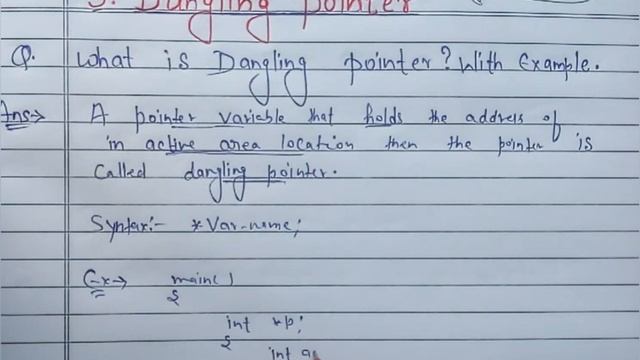 5. Dangling pointer
Q. What is Dangling pointer? With Example.
Ans→ A pointer variable that holds the address of
in active area location then the pointer is
Called dangling pointer.
Syntax:- *Var-name;
Ex→ main( )
{
int *p;
{
int a